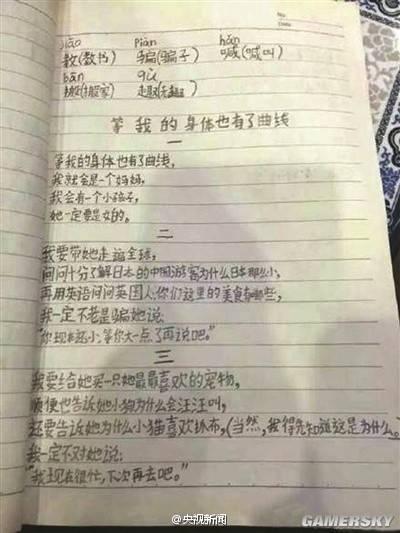 No.
Date
jiāo piàn hǎn
教(教书) 骗(骗子) 喊(喊叫)
bān qù
搬(搬家) 趣(无趣)
等我的身体也有了曲线
一
等我的身体也有了曲线,
我就会是一个妈妈,
我会有一个小孩子,
她一定要是女的。
二
我要带她走遍全球,
问问十分了解日本的中国游客为什么日本那么小,
再用英语问问英国人:你们这里的美食有哪些,
我一定不老是骗她说:
"你现在还小,等你大一点了再说吧。"
三
我要给她买一只她最最喜欢的宠物,
顺便也告诉她小狗为什么会汪汪叫,
还要告诉她为什么小猫喜欢抓布,(当然,我得先知道这是为什么。)
我一定不对她说:
"我现在很忙,下次再去吧。"
@央视新闻
GAMERSKY